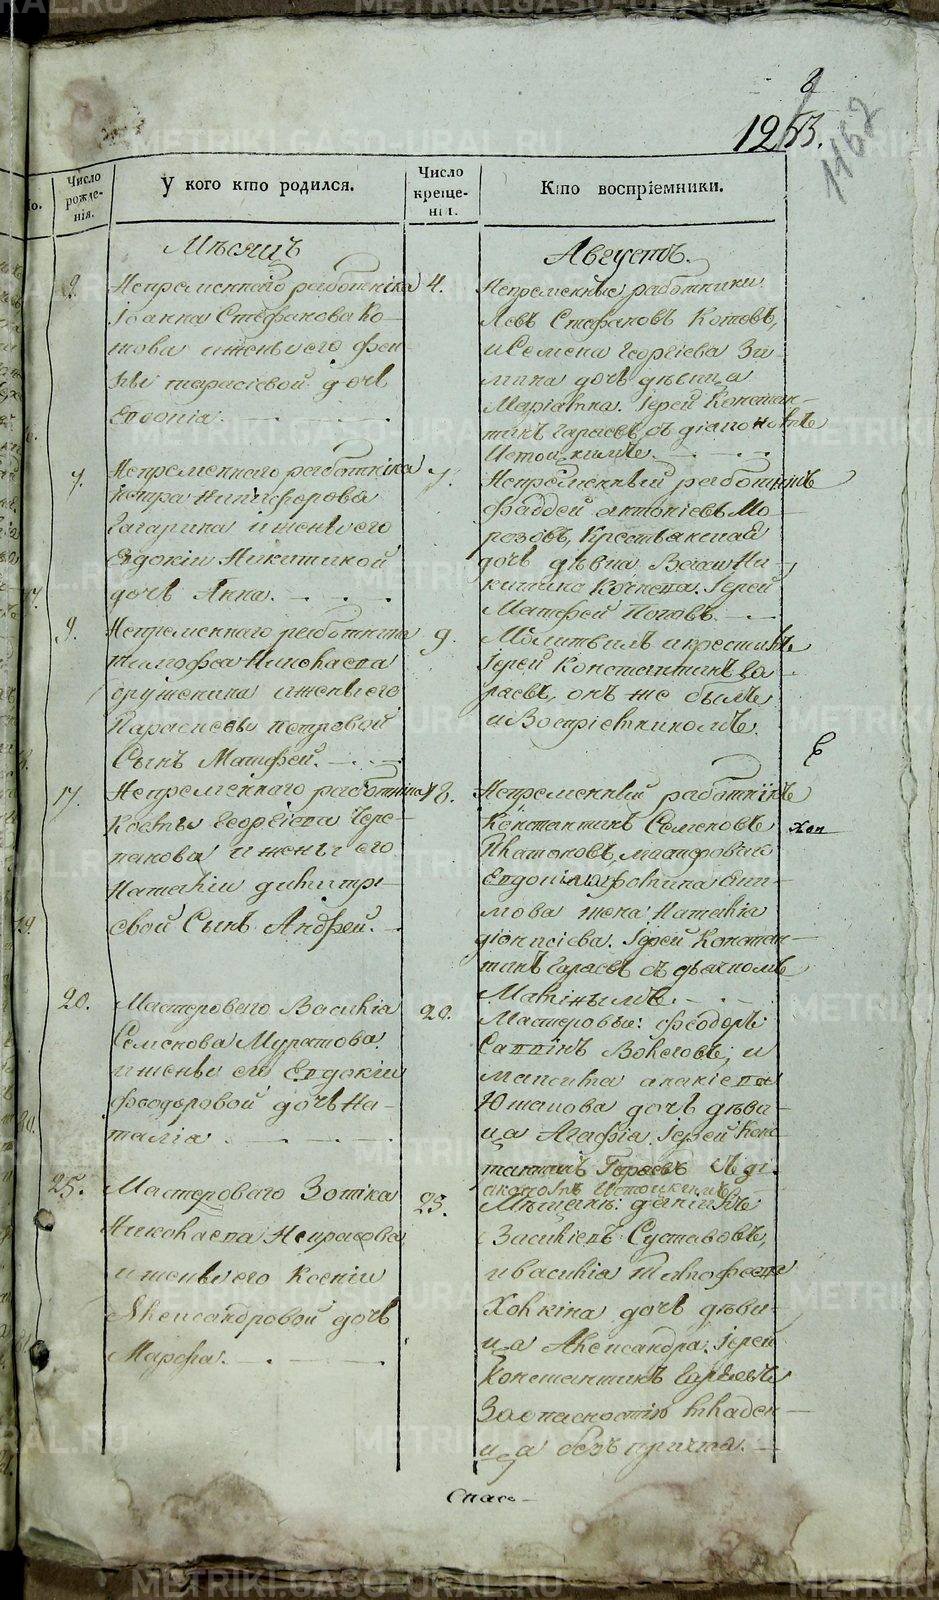 8
1253.
1162
Число рожде-нія.
У кого кто родился.
Число креще-ніи.
Кто воспріемники.
Мѣсяцъ
Августъ.
2.
Непременнаго работника
Іоанна Стефанова Ко-
това и жены его Фек
лы тарасіевой дочь
Евдокія
4.
Непременные работники
Левъ Стефановъ Котовъ,
и Семена Георгіева Зи-
мина дочь дѣвица
Маріанна. Іерей Констан-
тинъ Гараевъ съ діакономъ
Истоцкимъ.
7.
Непременнаго работника
Петра Никифорова
Гагарина и жены его
Евдокіи Никитиной
дочь Анна.
7.
Непременный работникъ
Фаддей антоніевъ Мо-
розовъ, Крестьянина
дочь дѣвка Васса Ни-
китина Іерей
Матфей Поповъ.
9.
Непременнаго работника
тимофеа Николаева
оруженина и жены его
Параскевы петровой
Сынъ Матфей.
9.
Молитвилъ и крестилъ
Іерей Константинъ Га
раевъ, онъ же былъ
и Воспріемникомъ.
17.
Непременнаго работника
Козмы Георгіева Чере-
панова и жены его
Наталіи димитрі-
евой Сынъ Андрей.
18.
Непременный работникъ
Константинъ Семеновъ
Платоновъ, мастероваго
мова жена Наталіа
діонисіева. Іерей Констан-
тинъ Гараевъ съ дьячкомъ
20.
Мастероваго Василіа
Семенова Муратова
и жены его Евдокіи
Феодоровой дочь На-
талія
20.
Мастеровые: Феодоръ
Саввинъ и
Максима
Юшакова дочь дѣви-
ца Агафіа. Іерей Конс-
тантинъ Гараевъ съ ді-
акономъ Истоцкимъ
25.
Мастероваго Зотика
Николаева Некрасова
и жены его Ксеніи
Александровой дочь
Марфа.
25.
Мѣщанъ: данилъ
Василіевъ Суставовъ,
и Василіа тимофеева
Холкина дочь дѣви-
ца Александра: Іерей
Константинъ Гараевъ
За опасностію младен-
ца безъ причта.
Спасо-
METRIKI.GASO-URAL.RU